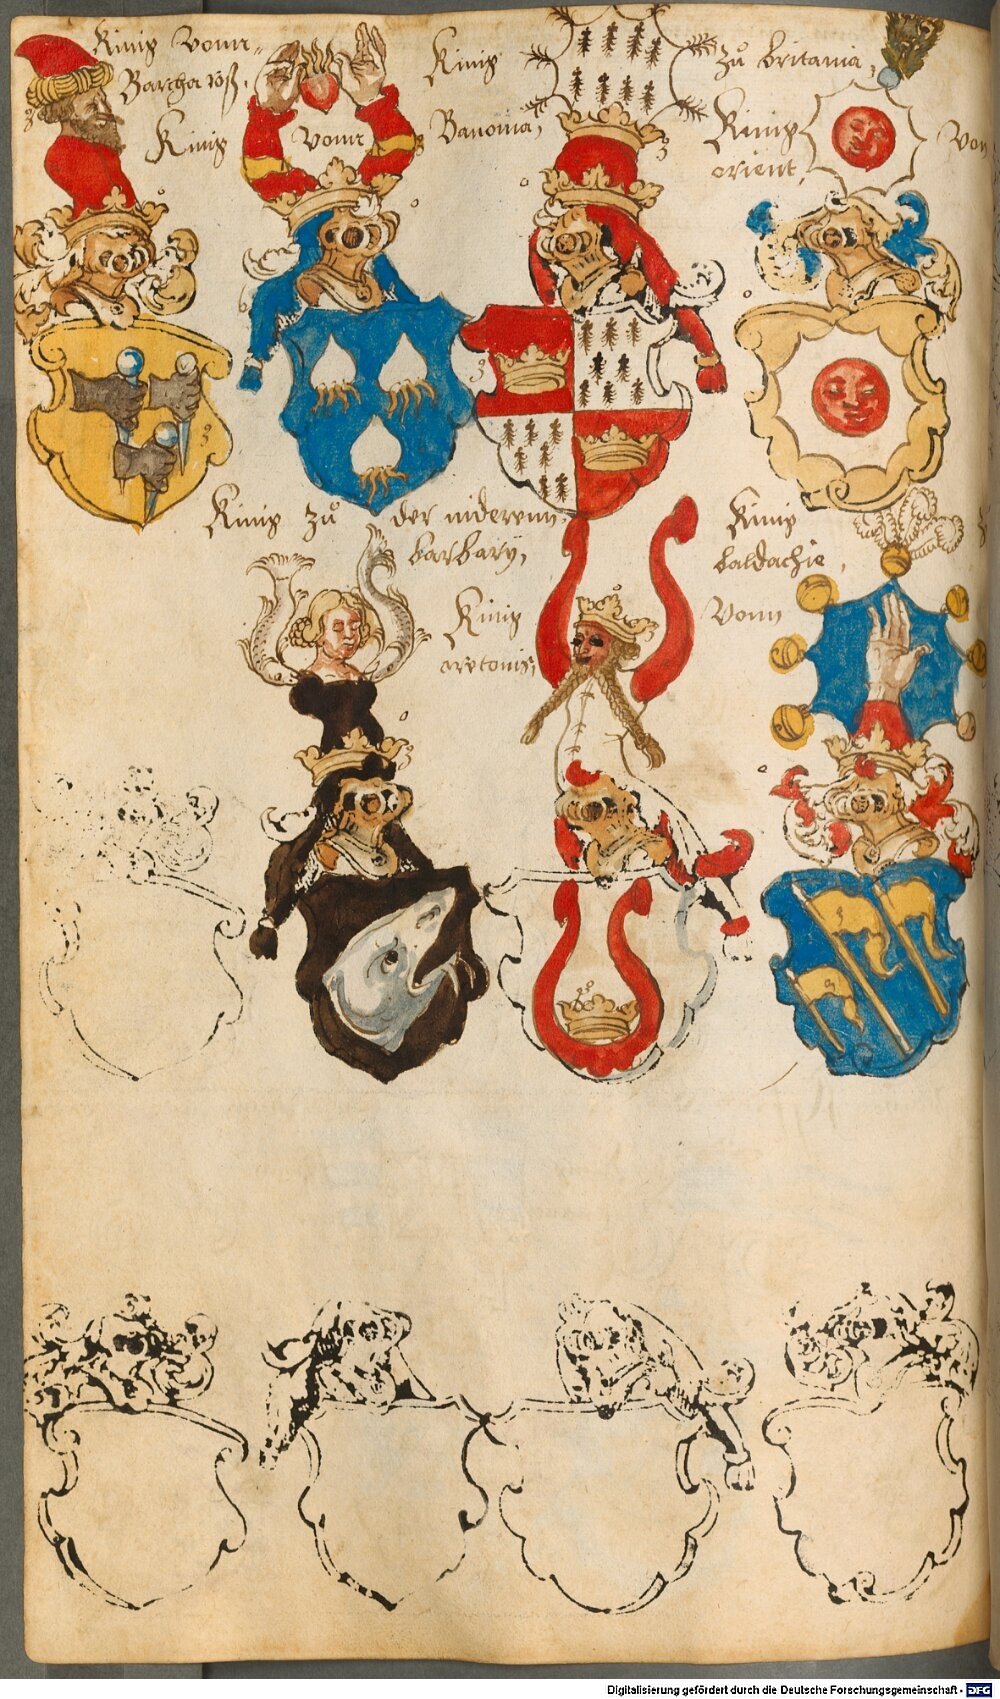 König vonn
Barcha roß.
König vonn
König
Banonia,
zů britania,
König von
orient,
König zů der niderenn
barbarÿ,
König vonn
aretonis
König
baldachie,
Digitalisierung gefördert durch die Deutsche Forschungsgemeinschaft - DFG